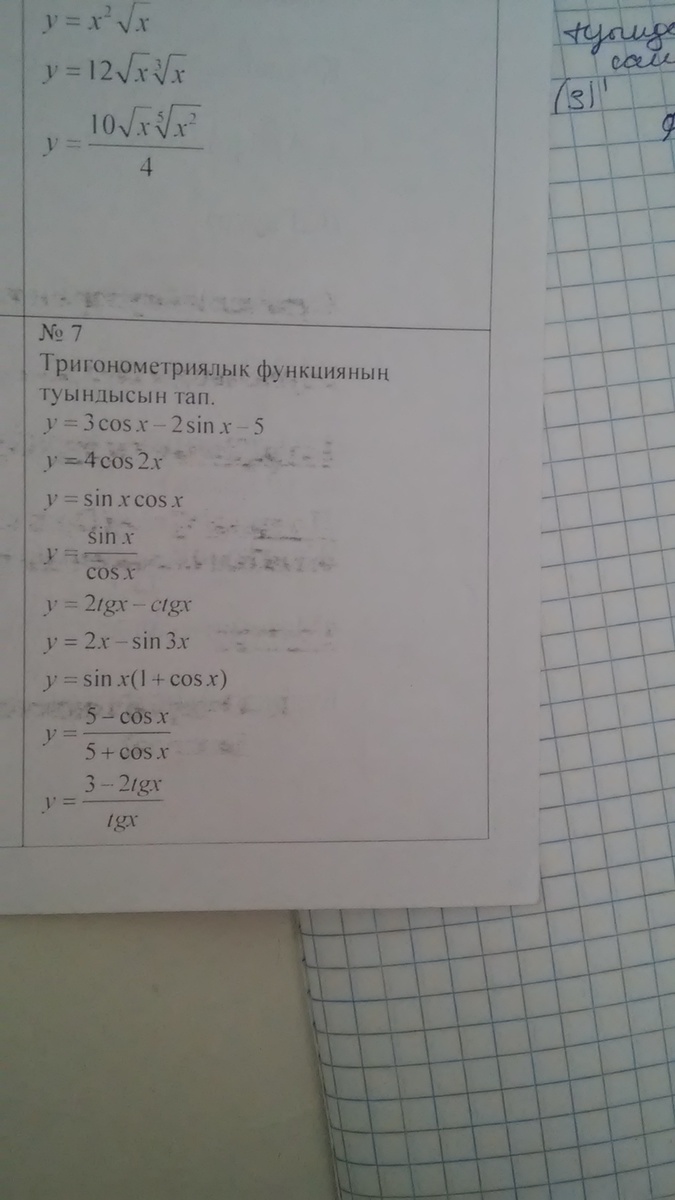 y = x²√x
y = 12√x∛x
y = 10√x ⁵√x² / 4
№ 7
Тригонометриялык функцияның
туындысын тап.
y = 3cos x – 2sin x – 5
y = 4cos 2x
y = sin x cos x
y = sin x / cos x
y = 2tgx – ctgx
y = 2x – sin 3x
y = sin x(1 + cos x)
y = 5 – cos x / 5 + cos x
y = 3 – 2tgx / tgx
(3)'